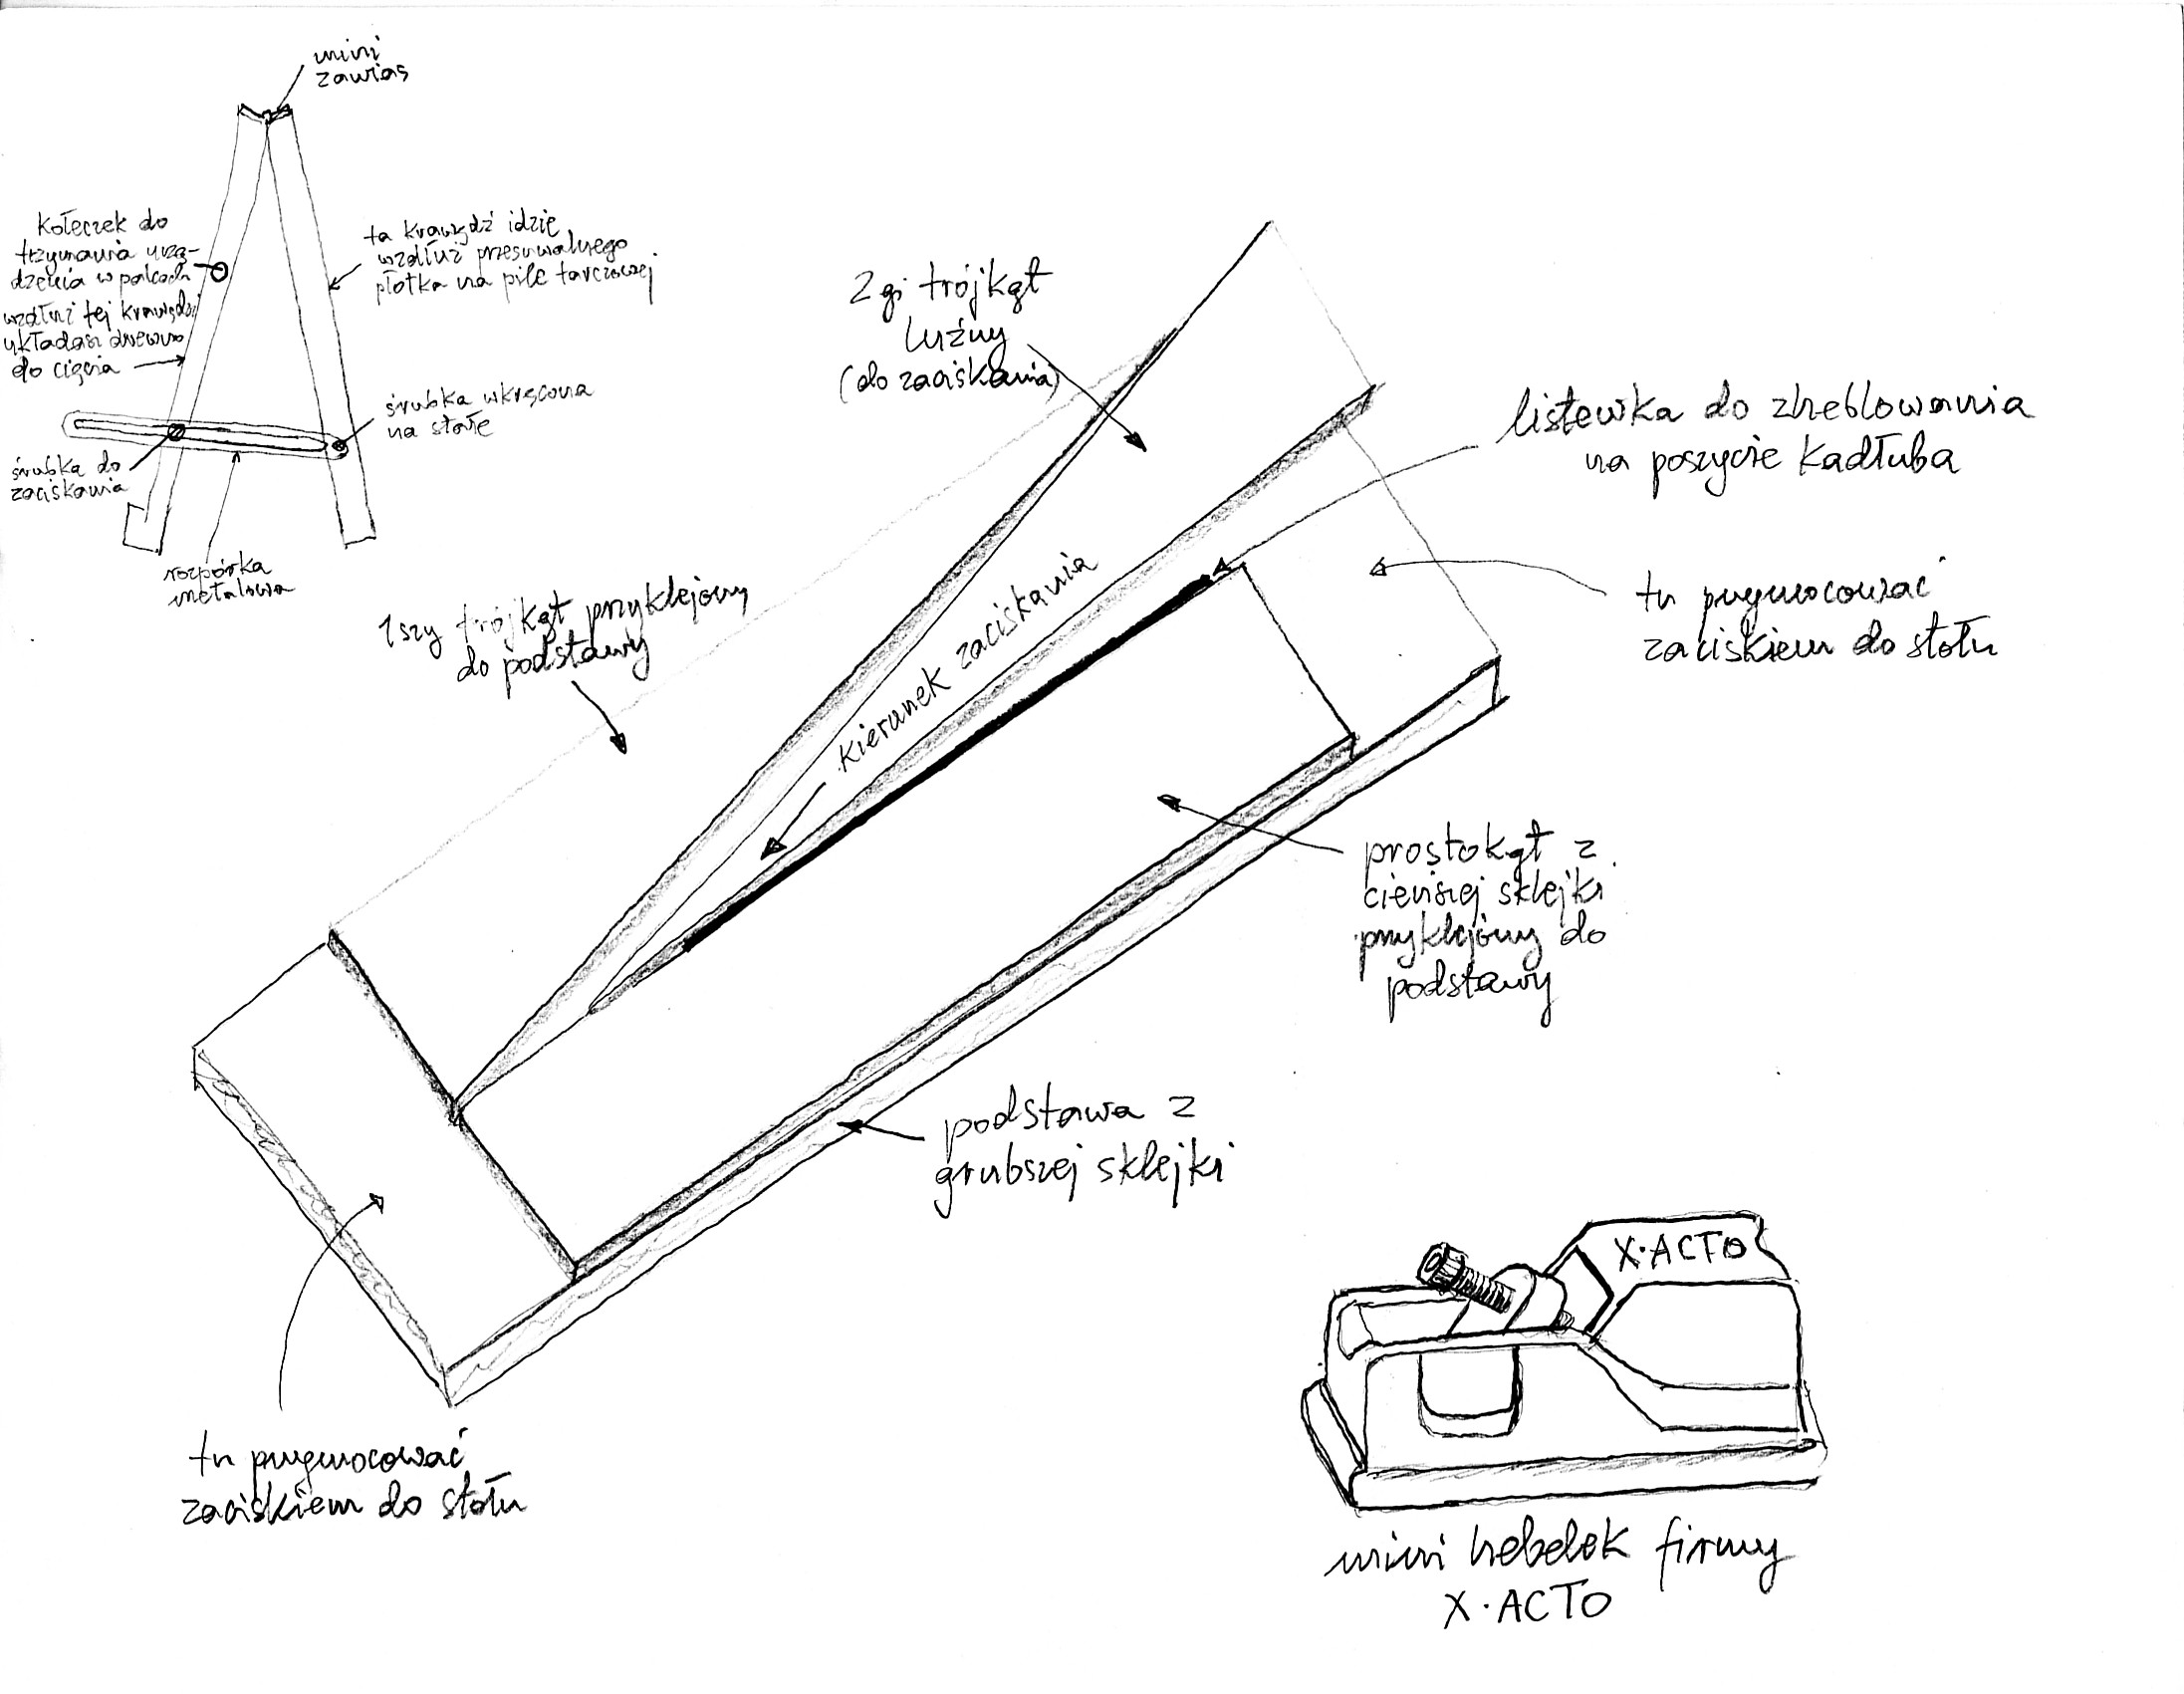 mini
zawias
kołeczek do
trzymania urzą-
dzenia w palcach
wzdłuż tej krawędzi
układasz drewno
do cięcia
ta krawędź idzie
wzdłuż przesuwalnego
płotka na pile tarczowej
śrubka wkręcona
na stałe
śrubka do
zaciskania
rozpórka
metalowa
2gi trójkąt
luźny
(do zaciskania)
listewka do zheblowania
na poszycie kadłuba
1szy trójkąt przyklejony
do podstawy
kierunek zaciskania
tu przymocować
zaciskiem do stołu
prostokąt z
cieńszej sklejki
przyklejony do
podstawy
podstawa z
grubszej sklejki
tu przymocować
zaciskiem do stołu
X·ACTO
mini hebelek firmy
X·ACTO